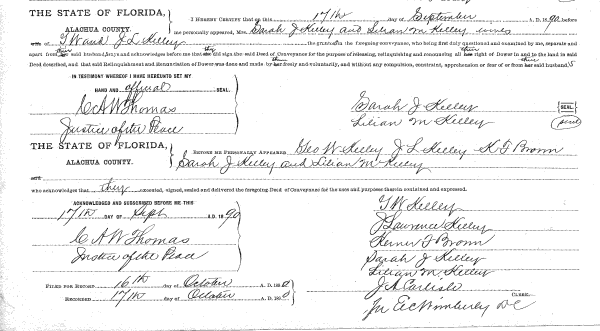 THE STATE OF FLORIDA,
ALACHUA COUNTY.
I HEREBY CERTIFY that on this 17th day of September A. D. 1890 before
me personally appeared, Mrs. Sarah J Kelley and Lilian M Kelley wives
of T W and J L Kelley the grantors in the foregoing conveyance, who being first duly questioned and examined by me, separate and
apart from their said husbands says and acknowledges before me that they did sign the said Deed of Conveyance for the purpose of releasing, relinquishing and renouncing all their right of Dower in and to the land in said
Deed described, and that said Relinquishment and Renunciation of Dower was done and made by them freely and voluntarily, and without any compulsion, constraint, apprehension or fear of or from her said husbands
IN TESTIMONY WHEREOF I MAKE HEREUNTO SET MY
HAND AND official SEAL.
C A W Thomas
Justice of the Peace
Sarah J Kelley SEAL
Lilian M Kelley seal
THE STATE OF FLORIDA,
ALACHUA COUNTY.
BEFORE ME PERSONALLY APPEARED Geo W Kelley J L Kelley K F Brown
Sarah J Kelley and Lilian M Kelley
who acknowledges that they executed, signed, sealed and delivered the foregoing Deed of Conveyance for the uses and purposes therein contained and expressed.
ACKNOWLEDGED AND SUBSCRIBED BEFORE ME THIS
17th DAY OF Sept A. D. 1890
C A W Thomas
Justice of the Peace
T W Kelley
J Lawrence Kelley
F Brown
Sarah J Kelley
Lilian M. Kelley
FILED FOR RECORD 16th day of October A. D. 1890
RECORDED 17th day of October A. D. 1890
J A Carlisle CLERK.
Wimberley D C